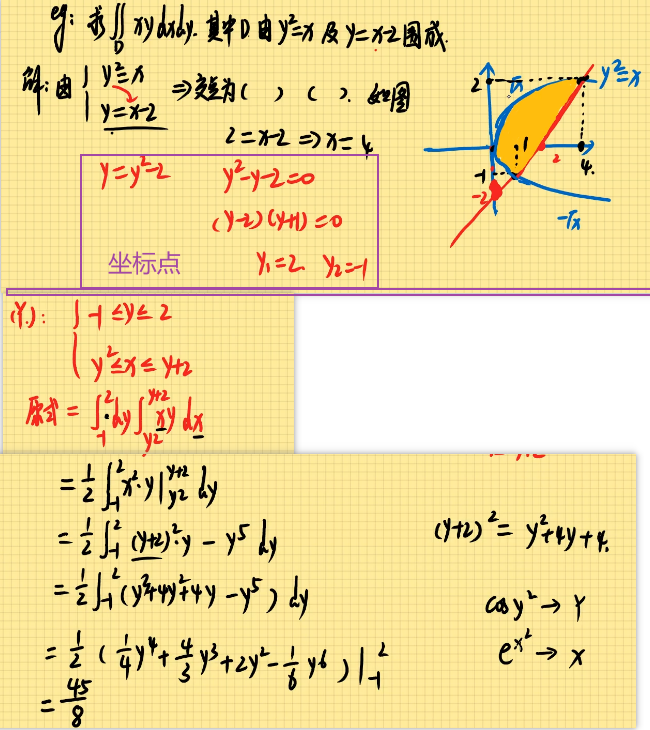 eg: 求∬_D xy dxdy. 其中D由y²=x及y=x-2围成.
解:由{ y²=x
y=x-2
⇒交点为( ) ( ). 如图
2=x-2 ⇒ x=4
y=y²-2 y²-y-2=0
(y-2)(y+1)=0
坐标点 y₁=2. y₂=-1
2 √x y²=x
1 2 4.
-1
-2
-√x
(Y.): { -1≤y≤2
y²≤x≤y+2
原式 = ∫_{-1}^{2} dy ∫_{y²}^{y+2} xy dx
= 1/2 ∫_{-1}^{2} x²·y |_{y²}^{y+2} dy
= 1/2 ∫_{-1}^{2} (y+2)²·y - y⁵ dy
(y+2)² = y²+4y+4.
= 1/2 ∫_{-1}^{2} (y³+4y²+4y-y⁵) dy
cos y² → Y
= 1/2 ( 1/4 y⁴ + 4/3 y³ + 2y² - 1/6 y⁶ ) |_{-1}^{2}
e^{x²} → x
= 45/8